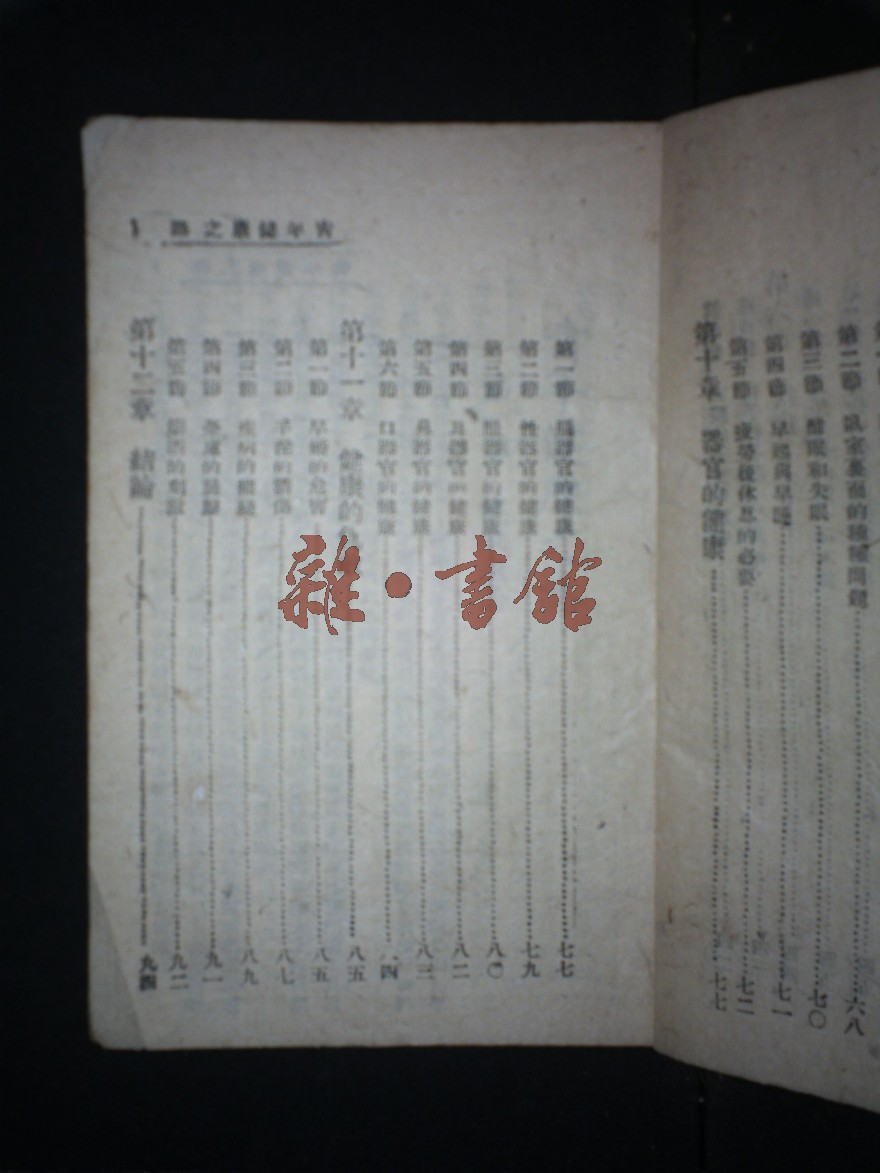 第二節 臥室裏面的種種問題 六八
第三節 酣眠和失眠 七〇
第四節 早起與早睡 七一
第五節 疲勞後休息的必要 七二
第十章 器官的健康 七七
青年健康之路
第一節 器官的健康 七七
第二節 性器官的健康 七九
第三節 器官的健康 八〇
第四節 器官的健康 八二
第五節 鼻器官的健康 八三
第六節 口器官的健康 八四
第十一章 健康的 八五
第一節 早婚的危害 八五
第二節 手淫的 八七
第三節 疾病的 八九
第四節 九一
第五節 九二
第十二章 結論 九四
雜·書館